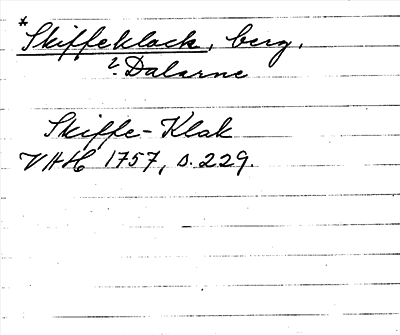 *
Skiffeklack, berg.
?. Dalarne
Skiffe-Klak
VAH 1757, s. 229.